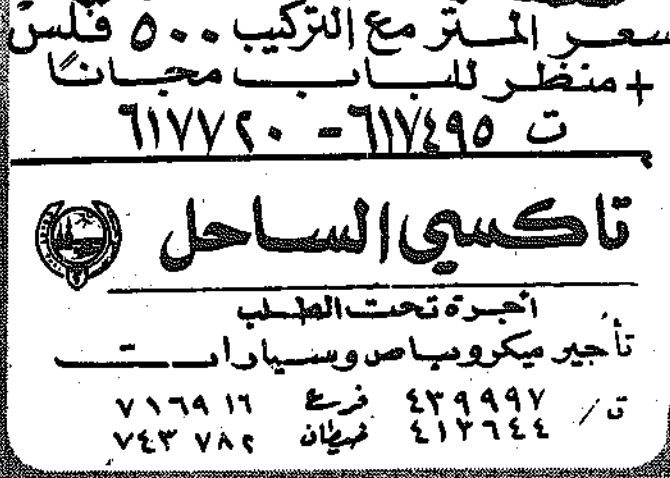 سعر المتر مع التركيب ٥٠٠ فلس
+ منظر للباب مجاناً
ت ٦١٧٤٩٥ - ٦١٧٧٢٠
تاكسي الساحل
أجرة تحت الطلب
تأجير ميكروباص وسيارات
ت / ٤٣٩٩٩٧ فرع ٧١٦٩١٦
٤١٣٦٤٤ خيطان ٧٤٣٧٨٢